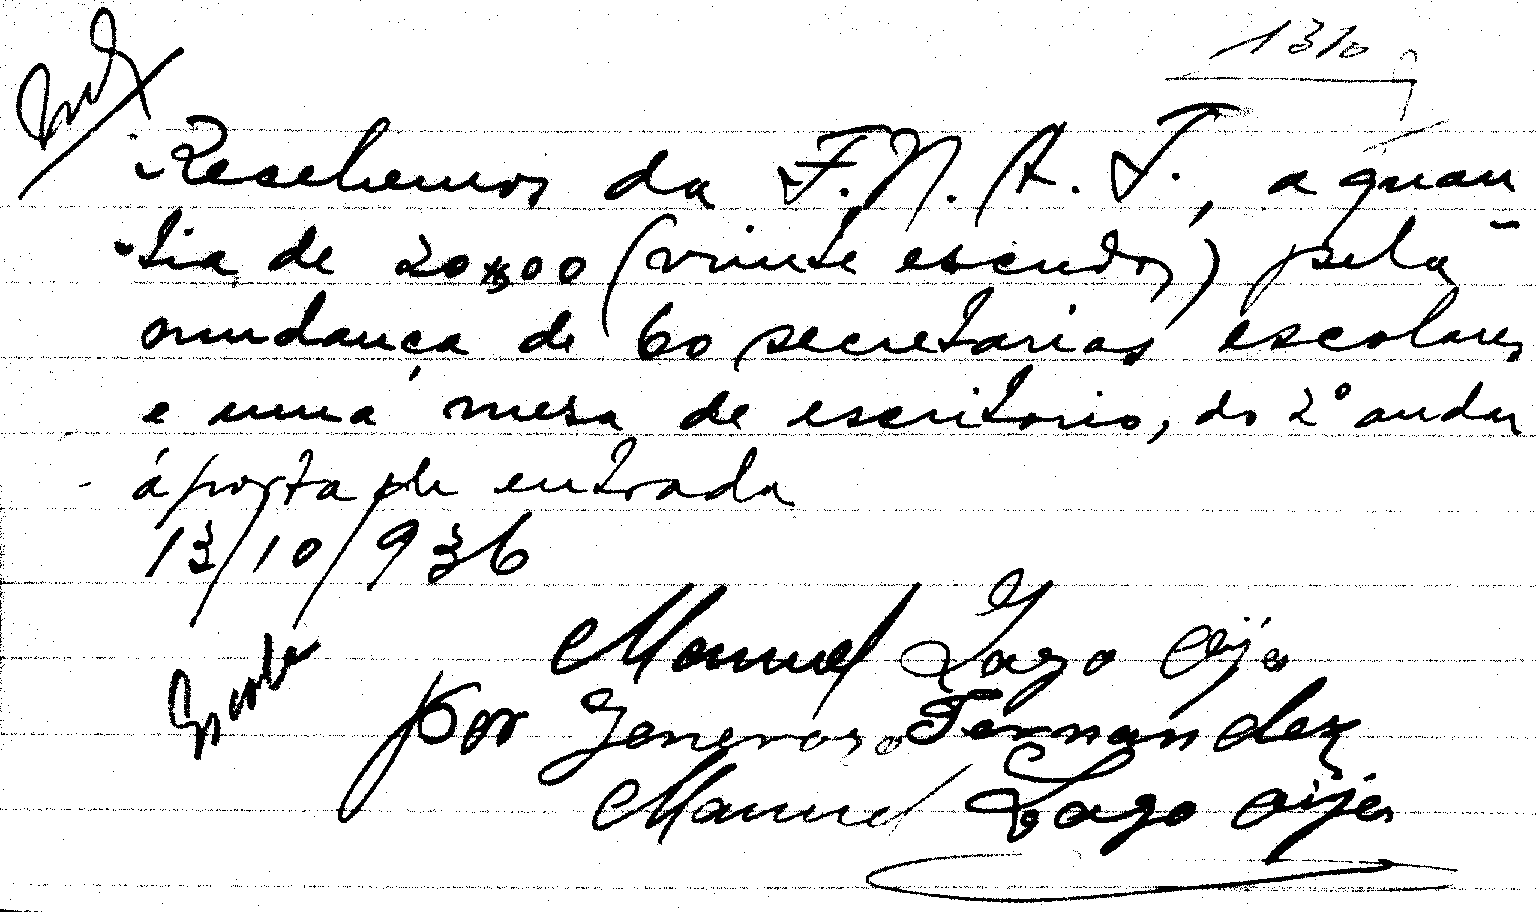 1310
Resebemos da F.N.A.T., a quan-
tia de 20$00 (vinte escudos) pela
mudança de 60 secretarias escolares
e uma mesa de escritorio, do 2º andar
á porta de entrada
13/10/936
Manuel Lago
por Generoso Fernandez
Manuel Lago